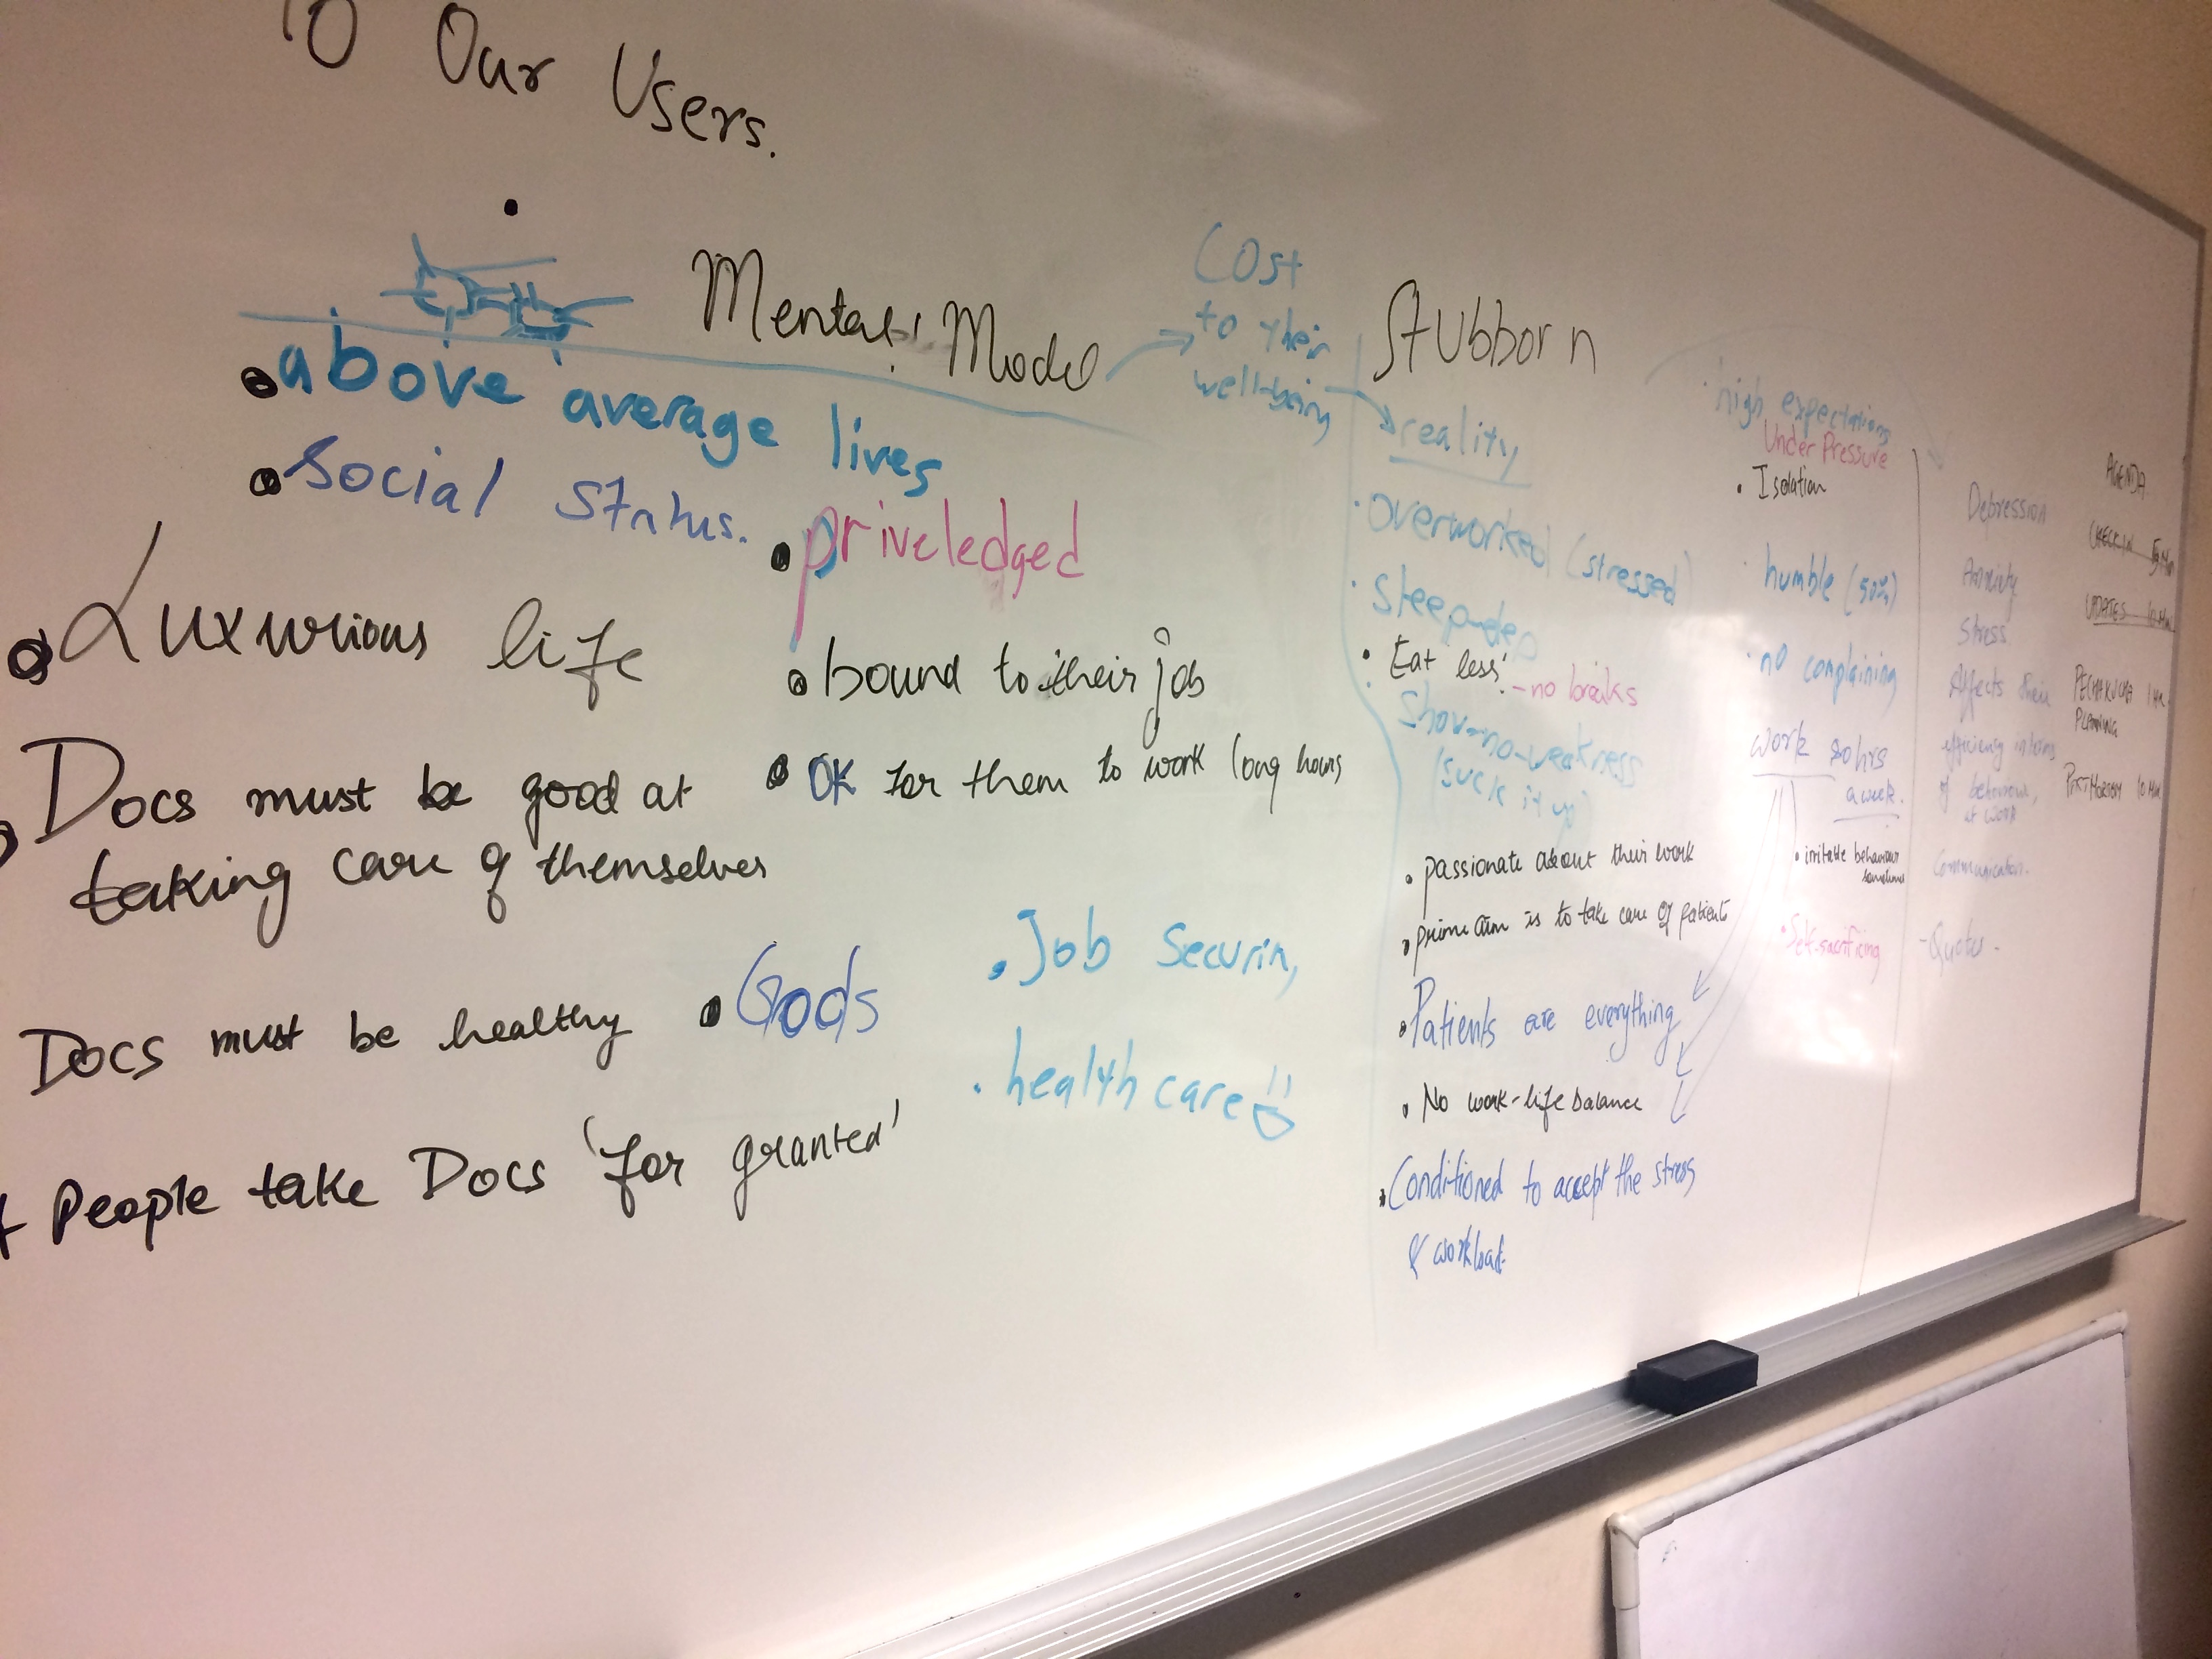 TO Our Users.
Mental Model
• above average lives
• Social Status.
• priveledged
• Luxurious life
• bound to their job
Docs must be good at
taking care of themselves
• OK for them to work long hours
Docs must be healthy
• Gods
• Job Security
• health care
People take Docs 'for granted'
Cost
to their
well-being
Stubborn
reality
• Overworked (stressed)
• Sleep-dep
• Eat less
- no breaks
Show-no-weakness
(suck it up)
• passionate about their work
• prime aim is to take care of patients
• Patients are everything
• No work-life balance
• Conditioned to accept the stress
& workload
• high expectations
Under Pressure
• Isolation
• humble (50%)
• no complaining
work 80hrs
a week.
• irritable behaviour
sometimes
• Self-sacrificing
Depression
Anxiety
Stress
Affects their
efficiency in terms
of behaviour,
at work
Communication.
- Quotes -
AGENDA
CHECK IN
UPDATES 10 MIN
PECHAKUCHA 1 HR.
PLANNING
10 MIN